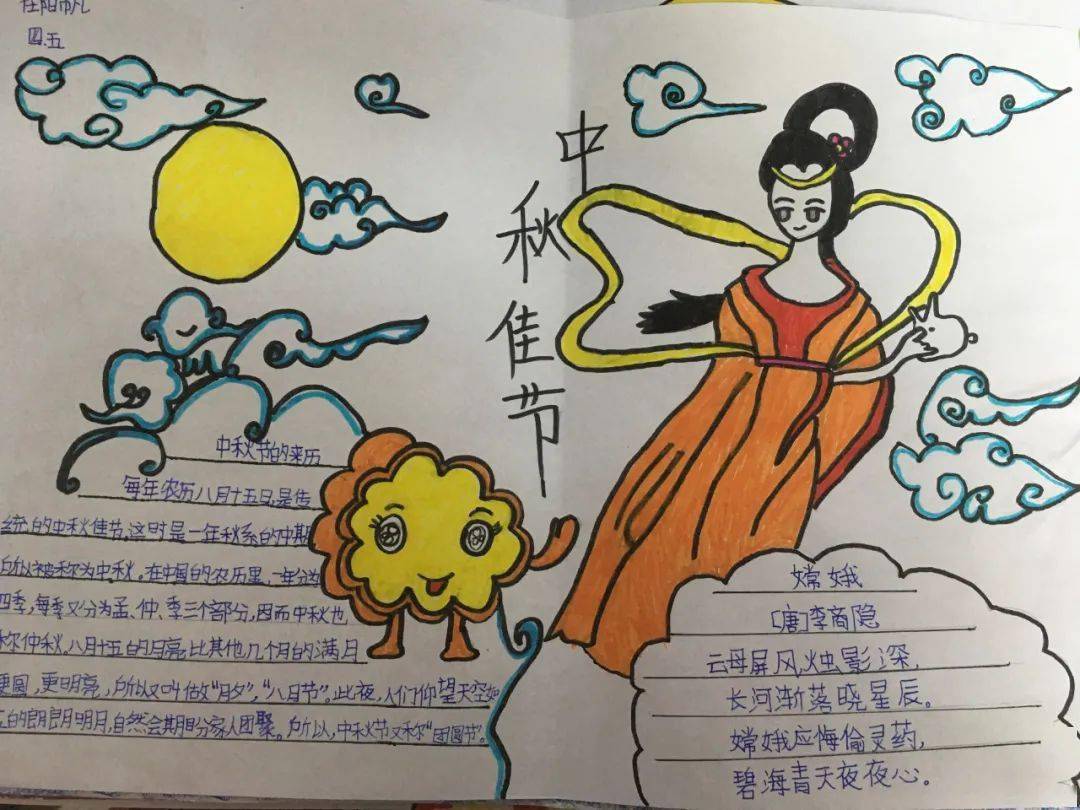 四.五
中秋佳节
中秋节的来历
每年农历八月十五日,是传
统的中秋佳节,这时是一年秋系的中期
所以被称为中秋。在中国的农历里,一年分为
四季,每季又分为孟、仲、季三个部分,因而中秋也
称仲秋,八月十五的月亮比其他几个月的满月
更圆,更明亮,所以又叫做“月夕”,“八月节”。此夜,人们仰望天空如
的朗朗明月,自然会期盼家人团聚。所以,中秋节又称“团圆节”。
嫦娥
[唐]李商隐
云母屏风烛影深,
长河渐落晓星辰。
嫦娥应悔偷灵药,
碧海青天夜夜心。